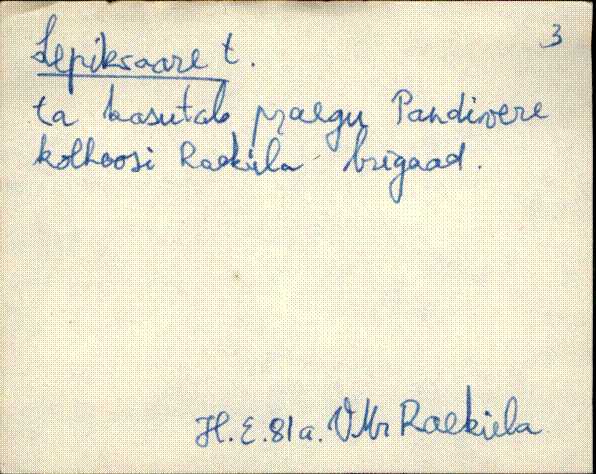 3
Lepiksaare t.
ta kasutab praegu Pandivere
kolhoosi Raeküla brigaad.
H. E. 81 a. VMr Raeküla